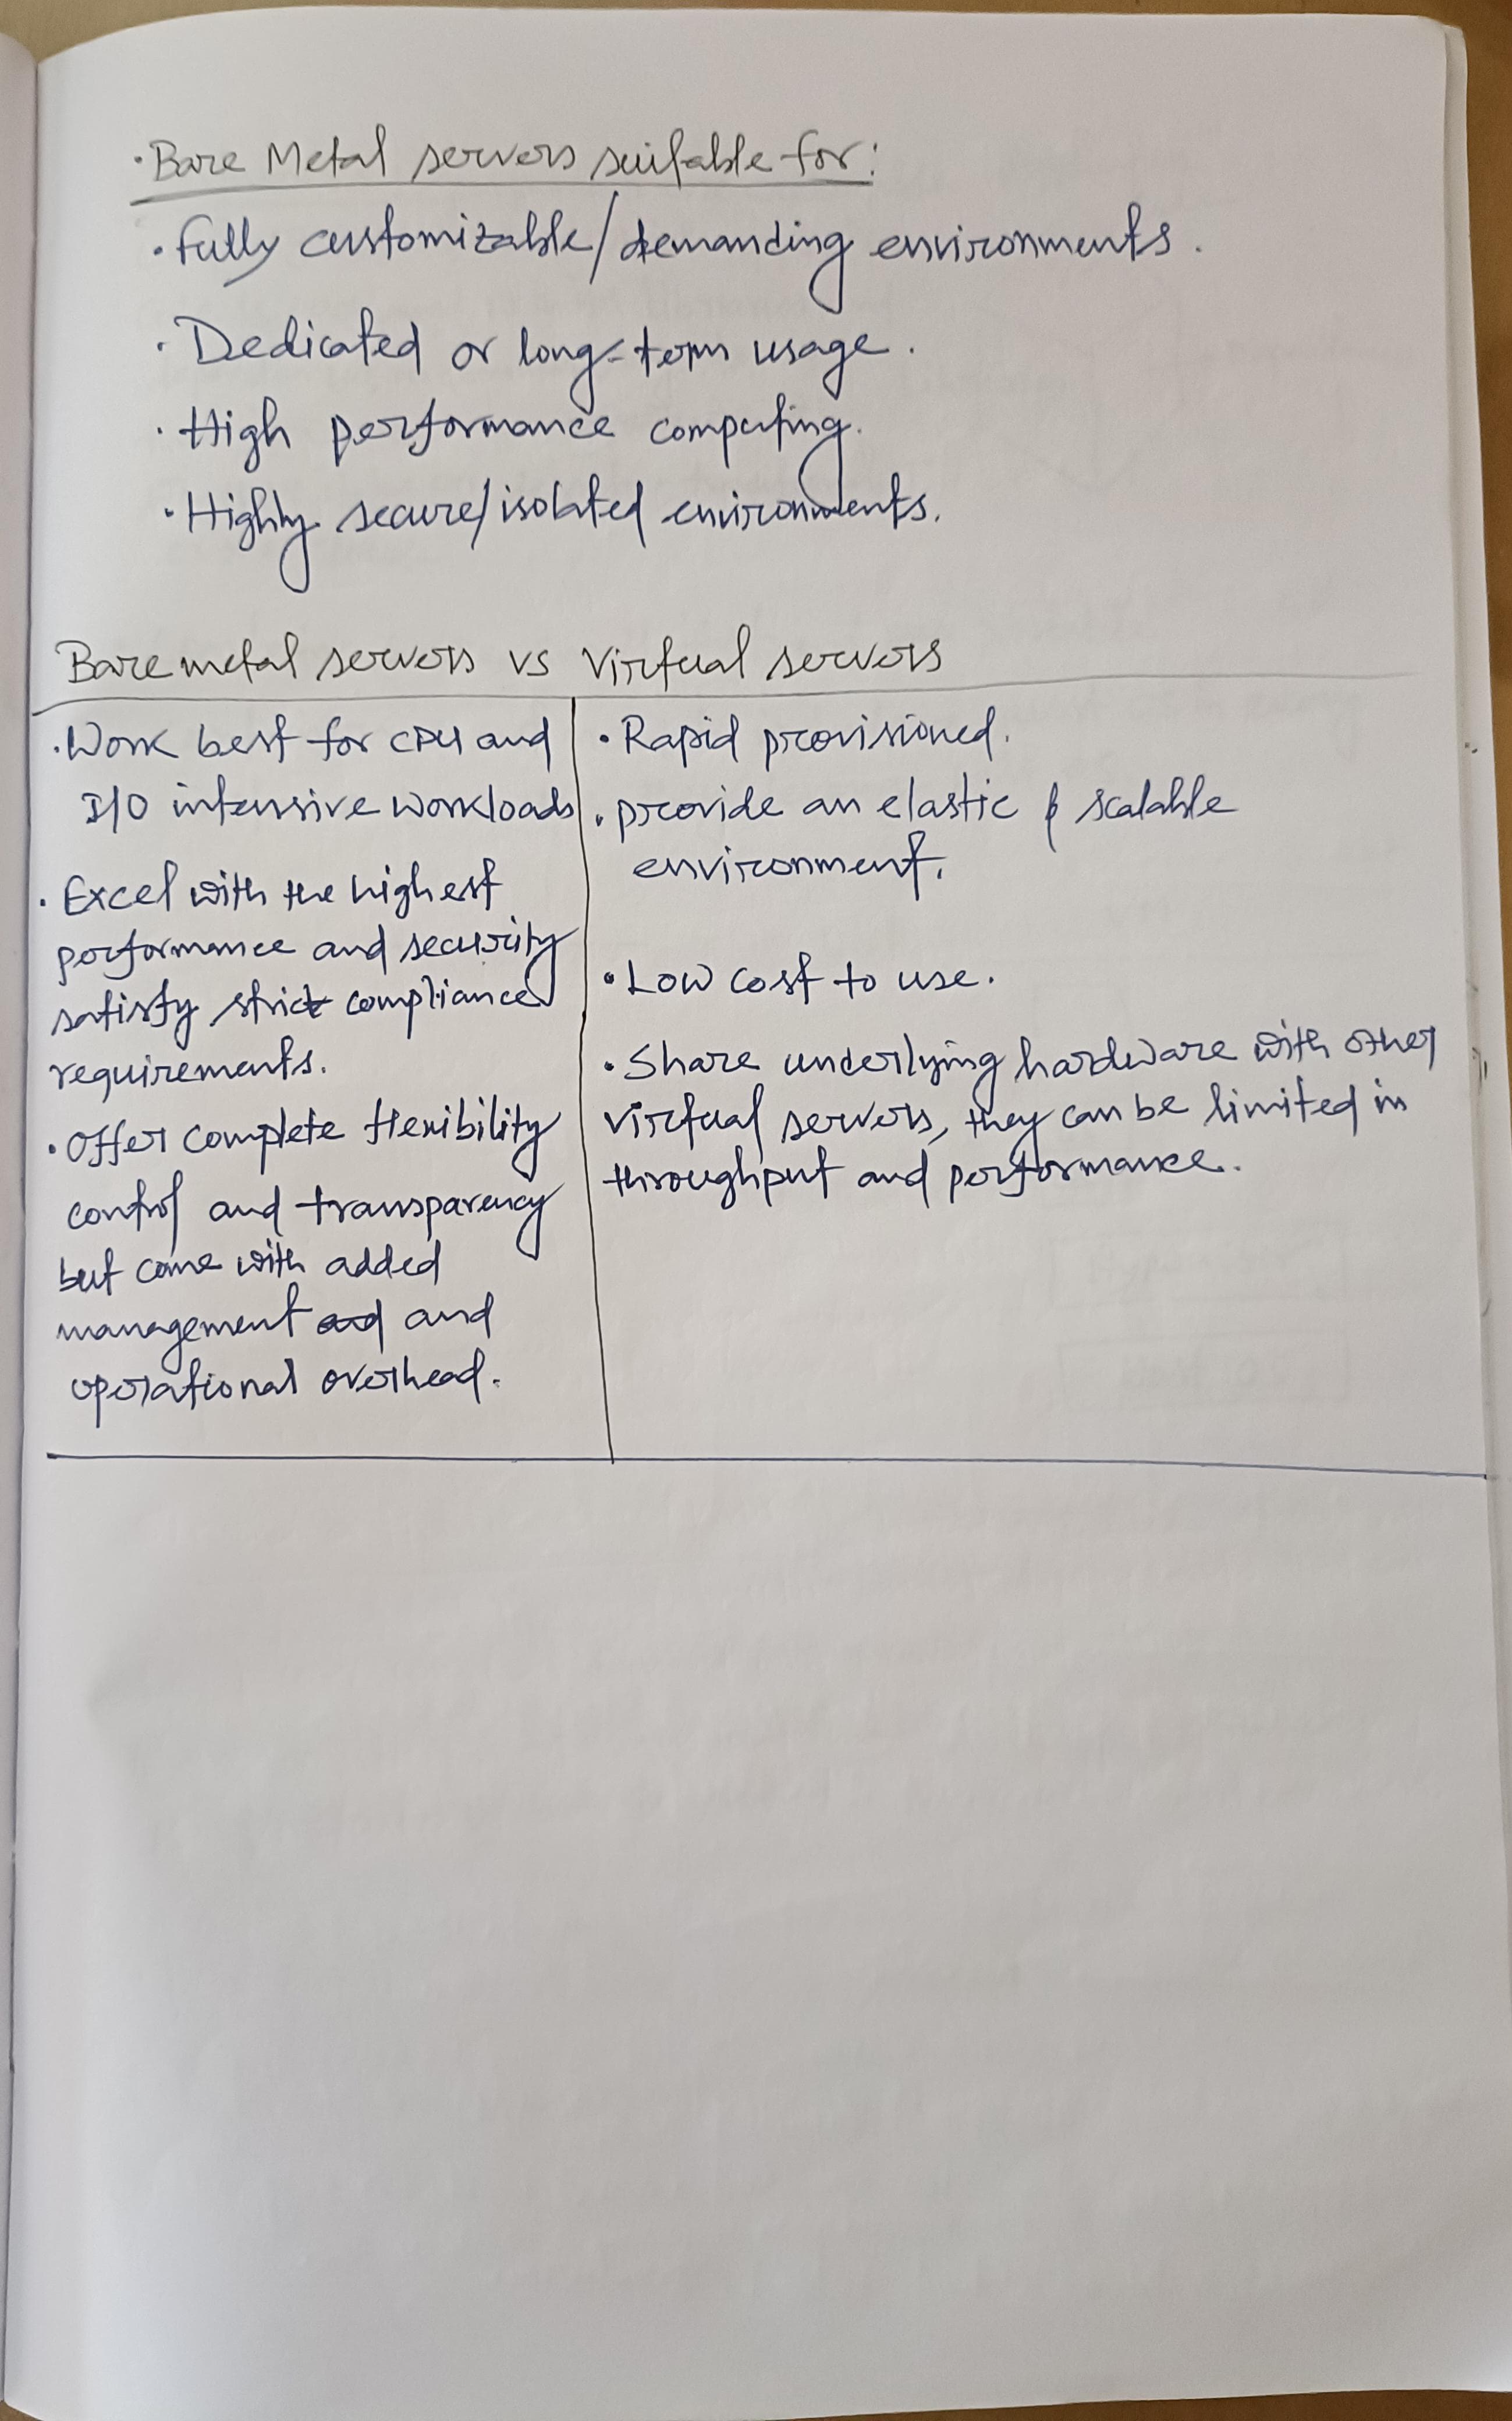 · Bare Metal servers suitable for:
· fully customizable/demanding environments.
· Dedicated or long-term usage.
· High performance computing.
· Highly secure/isolated environments.
Bare metal servers vs Virtual servers
· Work best for CPU and
I/O intensive workloads
· Excel with the highest
performance and security
satisfy strict compliance
requirements.
· Offer complete flexibility
control and transparency
but come with added
management and and
operational overhead.
· Rapid provisioned.
· provide an elastic & scalable
environment.
· Low cost to use.
· Share underlying hardware with other
virtual servers, they can be limited in
throughput and performance.